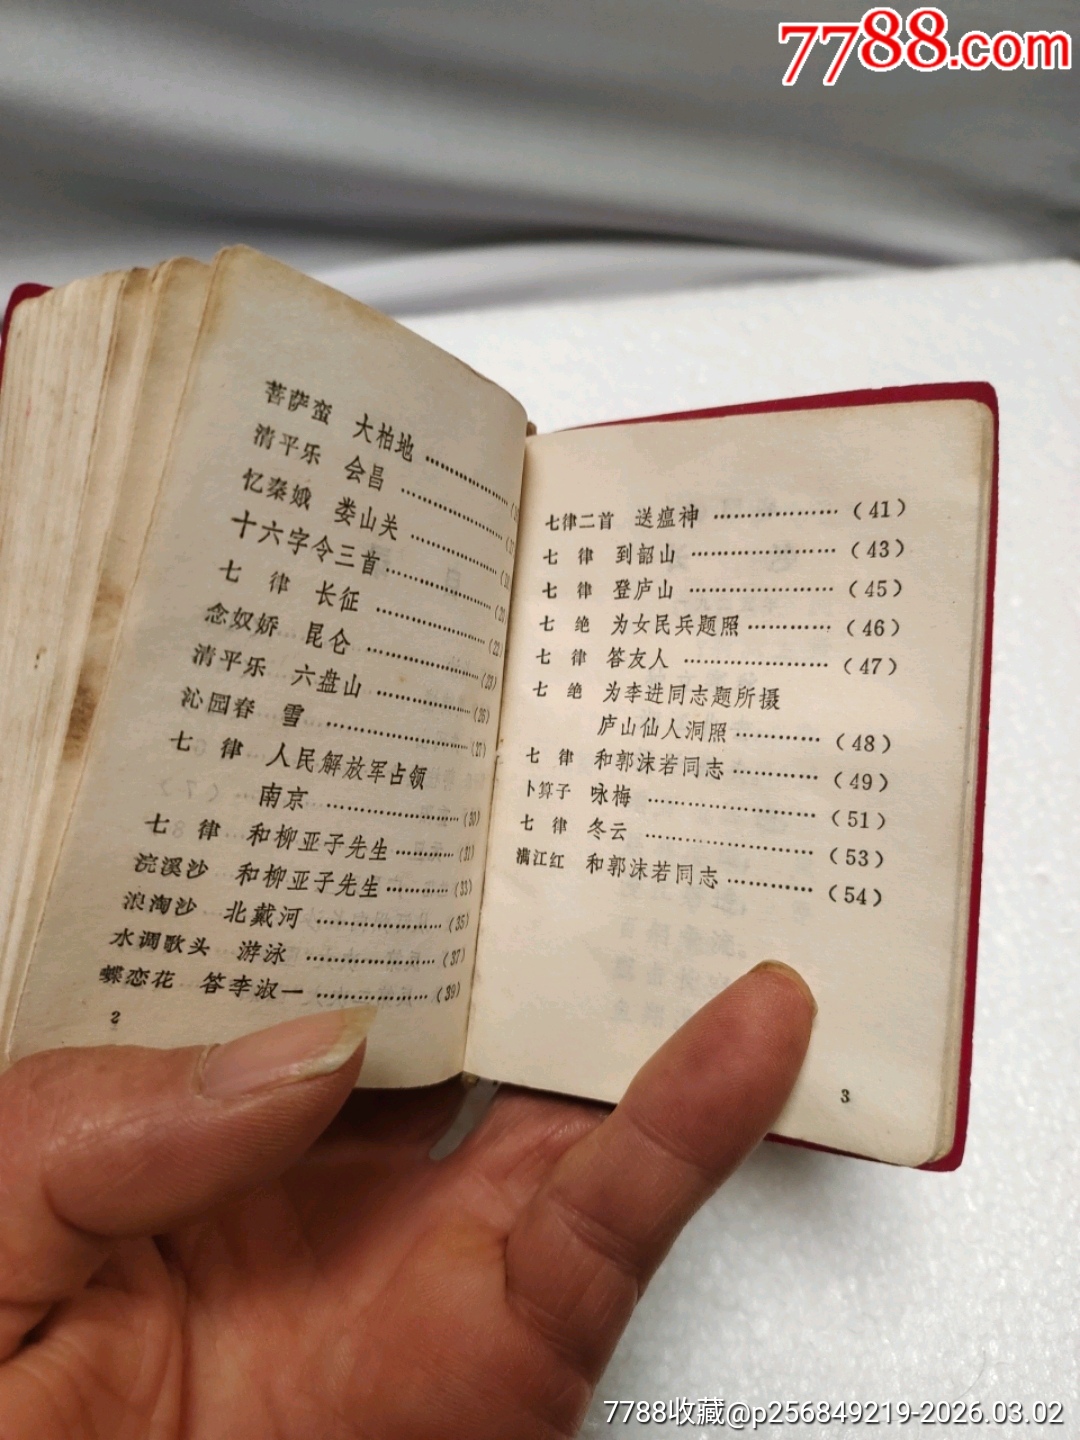 7788.com
菩萨蛮 大柏地 ………………
清平乐 会昌 ………………
忆秦娥 娄山关 ………………
十六字令三首 ………………
七 律 长征 ………………(22)
念奴娇 昆仑 ………………(23)
清平乐 六盘山 ………………(26)
沁园春 雪 ………………(27)
七 律 人民解放军占领
南京 ………………(30)
七 律 和柳亚子先生 …………(31)
浣溪沙 和柳亚子先生 …………(33)
浪淘沙 北戴河 ………………(35)
水调歌头 游泳 ………………(37)
蝶恋花 答李淑一 ………………(39)
2
七律二首 送瘟神 ………………(41)
七 律 到韶山 ………………(43)
七 律 登庐山 ………………(45)
七 绝 为女民兵题照 …………(46)
七 律 答友人 ………………(47)
七 绝 为李进同志题所摄
庐山仙人洞照 …………(48)
七 律 和郭沫若同志 …………(49)
卜算子 咏梅 ………………(51)
七 律 冬云 ………………(53)
满江红 和郭沫若同志 …………(54)
3
7788收藏@p256849219-2026.03.02